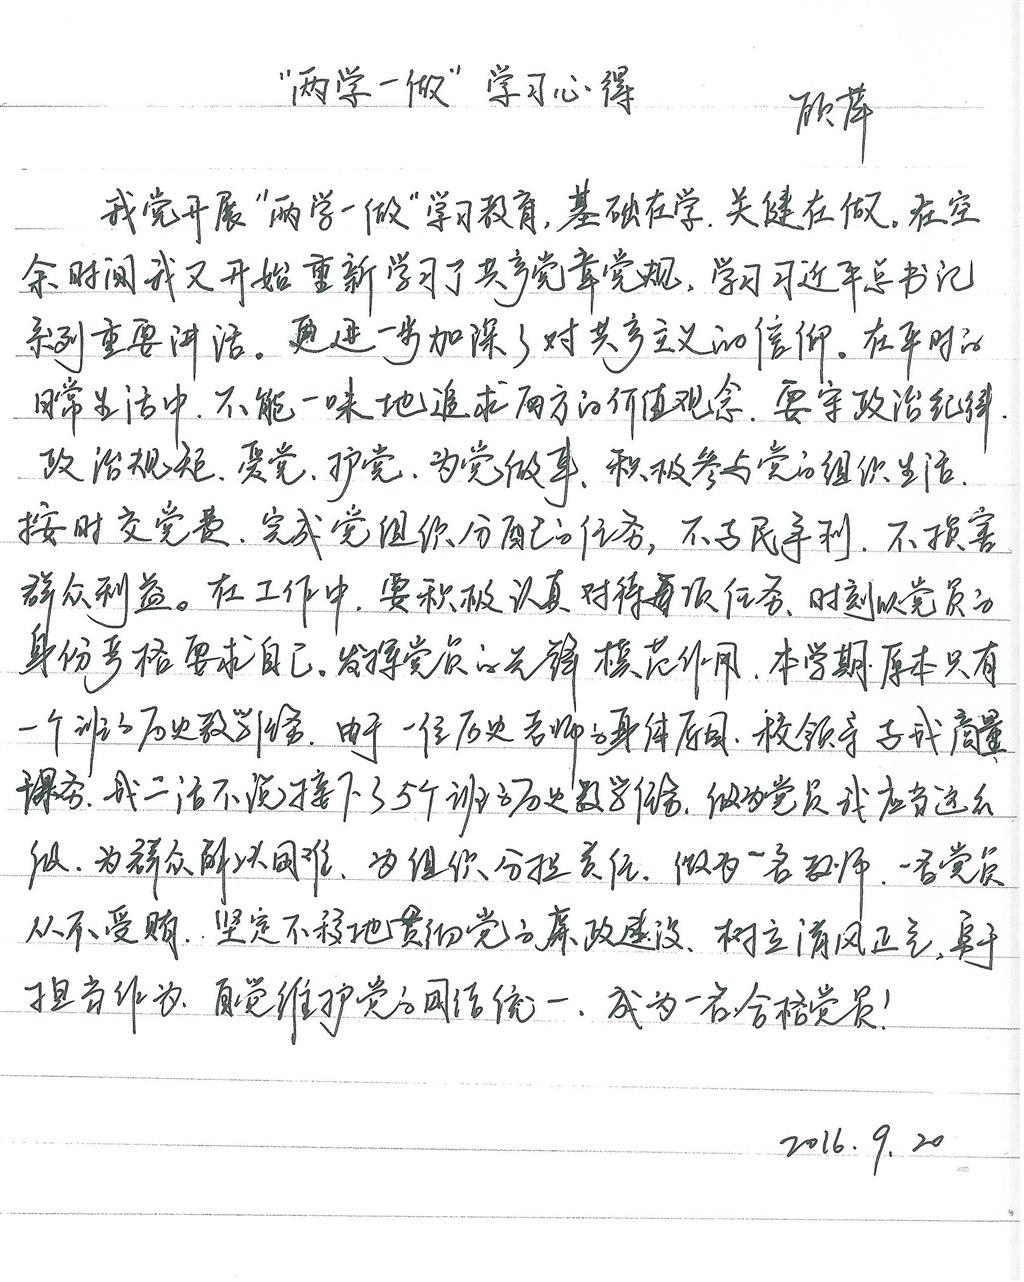 “两学一做”学习心得
顾萍
我党开展“两学一做”学习教育,基础在学,关键在做。在空
余时间我又开始重新学习了共产党章党规,学习习近平总书记
系列重要讲话。更进一步加深了对共产主义的信仰。在平时的
日常生活中,不能一味地追求西方的价值观念,要守政治纪律,
政治规矩、爱党、护党、为党做事、积极参与党的组织生活,
按时交党费、完成党组织分配的任务,不与民争利,不损害
群众利益。在工作中,要积极认真对待每项任务、时刻以党员的
身份严格要求自己。发挥党员的先锋模范作用,本学期原本只有
一个班的历史教学任务,由于一位历史老师的身体原因,校领导与我商量
课务,我二话不说接下了5个班的历史教学任务,做为党员我应当这么
做、为群众解决困难,为组织分担责任。做为一名教师,一名党员
从不受贿,坚定不移地贯彻党的廉政建设、树立清风正气,勇于
担当作为、自觉维护党的团结统一、成为一名合格党员!
2016.9.20